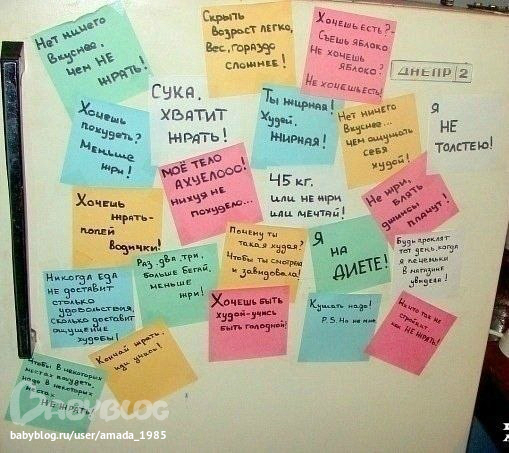 Нет ничего
вкуснее,
чем НЕ
ЖРАТЬ!
Скрыть
возраст легко,
Вес, гораздо
сложнее!
Хочешь есть?-
Съешь яблоко
Не хочешь
яблоко?
Не хочешь есть!
ДНЕПР 2
Хочешь
похудеть?
Меньше
жри!
СУКА,
ХВАТИТ
ЖРАТЬ!
Ты жирная!
Худей,
ЖИРНАЯ!
Нет ничего
Вкуснее...
чем ощущать
себя
худой!
Я
НЕ
ТОЛСТЕЮ!
Хочешь
жрать-
попей
водички!
МОЁ ТЕЛО
АХУЕЛООО!
нихуя не
похудело...
45 кг.
или не жри
или мечтай!
Не жри,
блять
джинсы
плачут!
Никогда Еда
не доставит
столько
удовольствия,
сколько доставит
ощущение
худобы!
Раз, два, три,
больше бегай,
меньше
жри!
Почему ты
такая худая?
Чтобы ты смотрела
и завидовала!
Я
НА
ДИЕТЕ!
Будь проклят
тот день, когда
я печеньки
в магазине
увидела!
Хочешь быть
худой-учись
быть голодной!
Кушать надо!
P.S. Но не мне.
Ничто так не
стройнит,
как НЕ ЖРАТЬ!
Кончай жрать,
иди учись!
Чтобы в некоторых
местах похудеть,
надо в некоторых
местах
НЕ ЖРАТЬ!
BABYBLOG
babyblog.ru/user/amada_1985